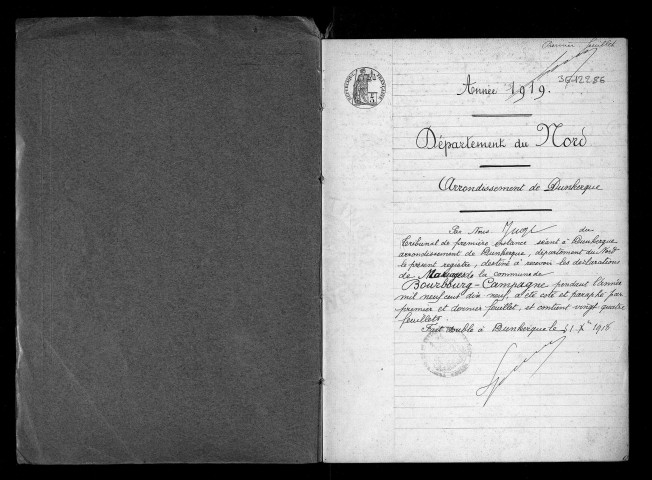 Premier feuillet
36-12286
RÉPUBLIQUE FRANÇAISE
Année 1919.
Département du Nord
Arrondissement de Dunkerque
Par Nous Juge du
Tribunal de première instance séant à Dunkerque
arrondissement de Dunkerque, département du Nord
le présent registre, destiné à recevoir les déclarations
de Mariages de la commune de
Bourbourg-Campagne pendant l'année
mil neuf cent dix neuf, a été coté et paraphé par
premier et dernier feuillet, et contient vingt quatre
feuillets.
Fait double à Dunkerque le 31 Xbre 1918